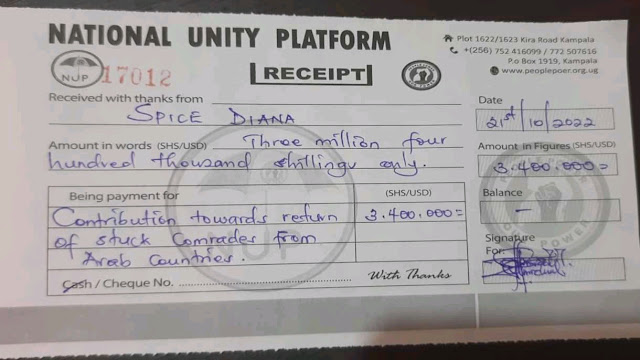 NATIONAL UNITY PLATFORM
Plot 1622/1623 Kira Road Kampala
+(256) 752 416099 / 772 507616
P.o Box 1919, Kampaler
www.peoplepoer.org.ug
NUP
17012
RECEIPT
Received with thanks from
SPICE DIANA
Date
21st/10/2022
Amount in words (SHS/USD) Three million four
hundred thousand shillings only.
Amount in Figures (SHS/USD)
3.400.000=
Being payment for (SHS/USD)
Contribution towards return 3.400.000=
of stuck Comrades from
Arab Countries.
Balance
–
Signature
For:
Cash / Cheque No.
With Thanks
NUP